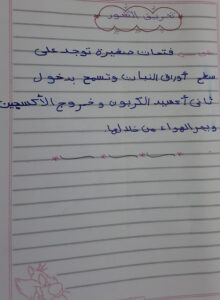 تعريف الثغور
فتحات صغيرة توجد على
سطح أوراق النبات وتسمح بدخول
ثاني أكسيد الكربون وخروج الأكسجين
ويمر الهواء من خلالها.